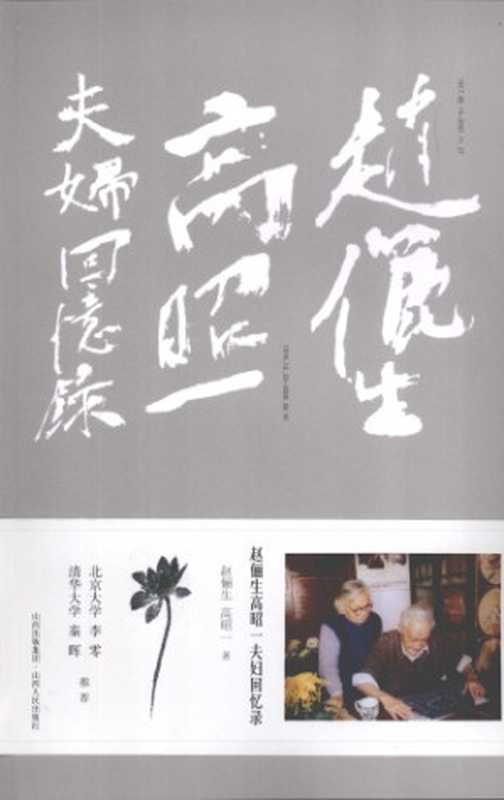 趙儷生
高昭一
夫婦回憶錄
赵俪生高昭一夫妇回忆录
赵俪生 高昭一 著
北京大学 李零
清华大学 秦晖
推荐
山西出版集团·山西人民出版社